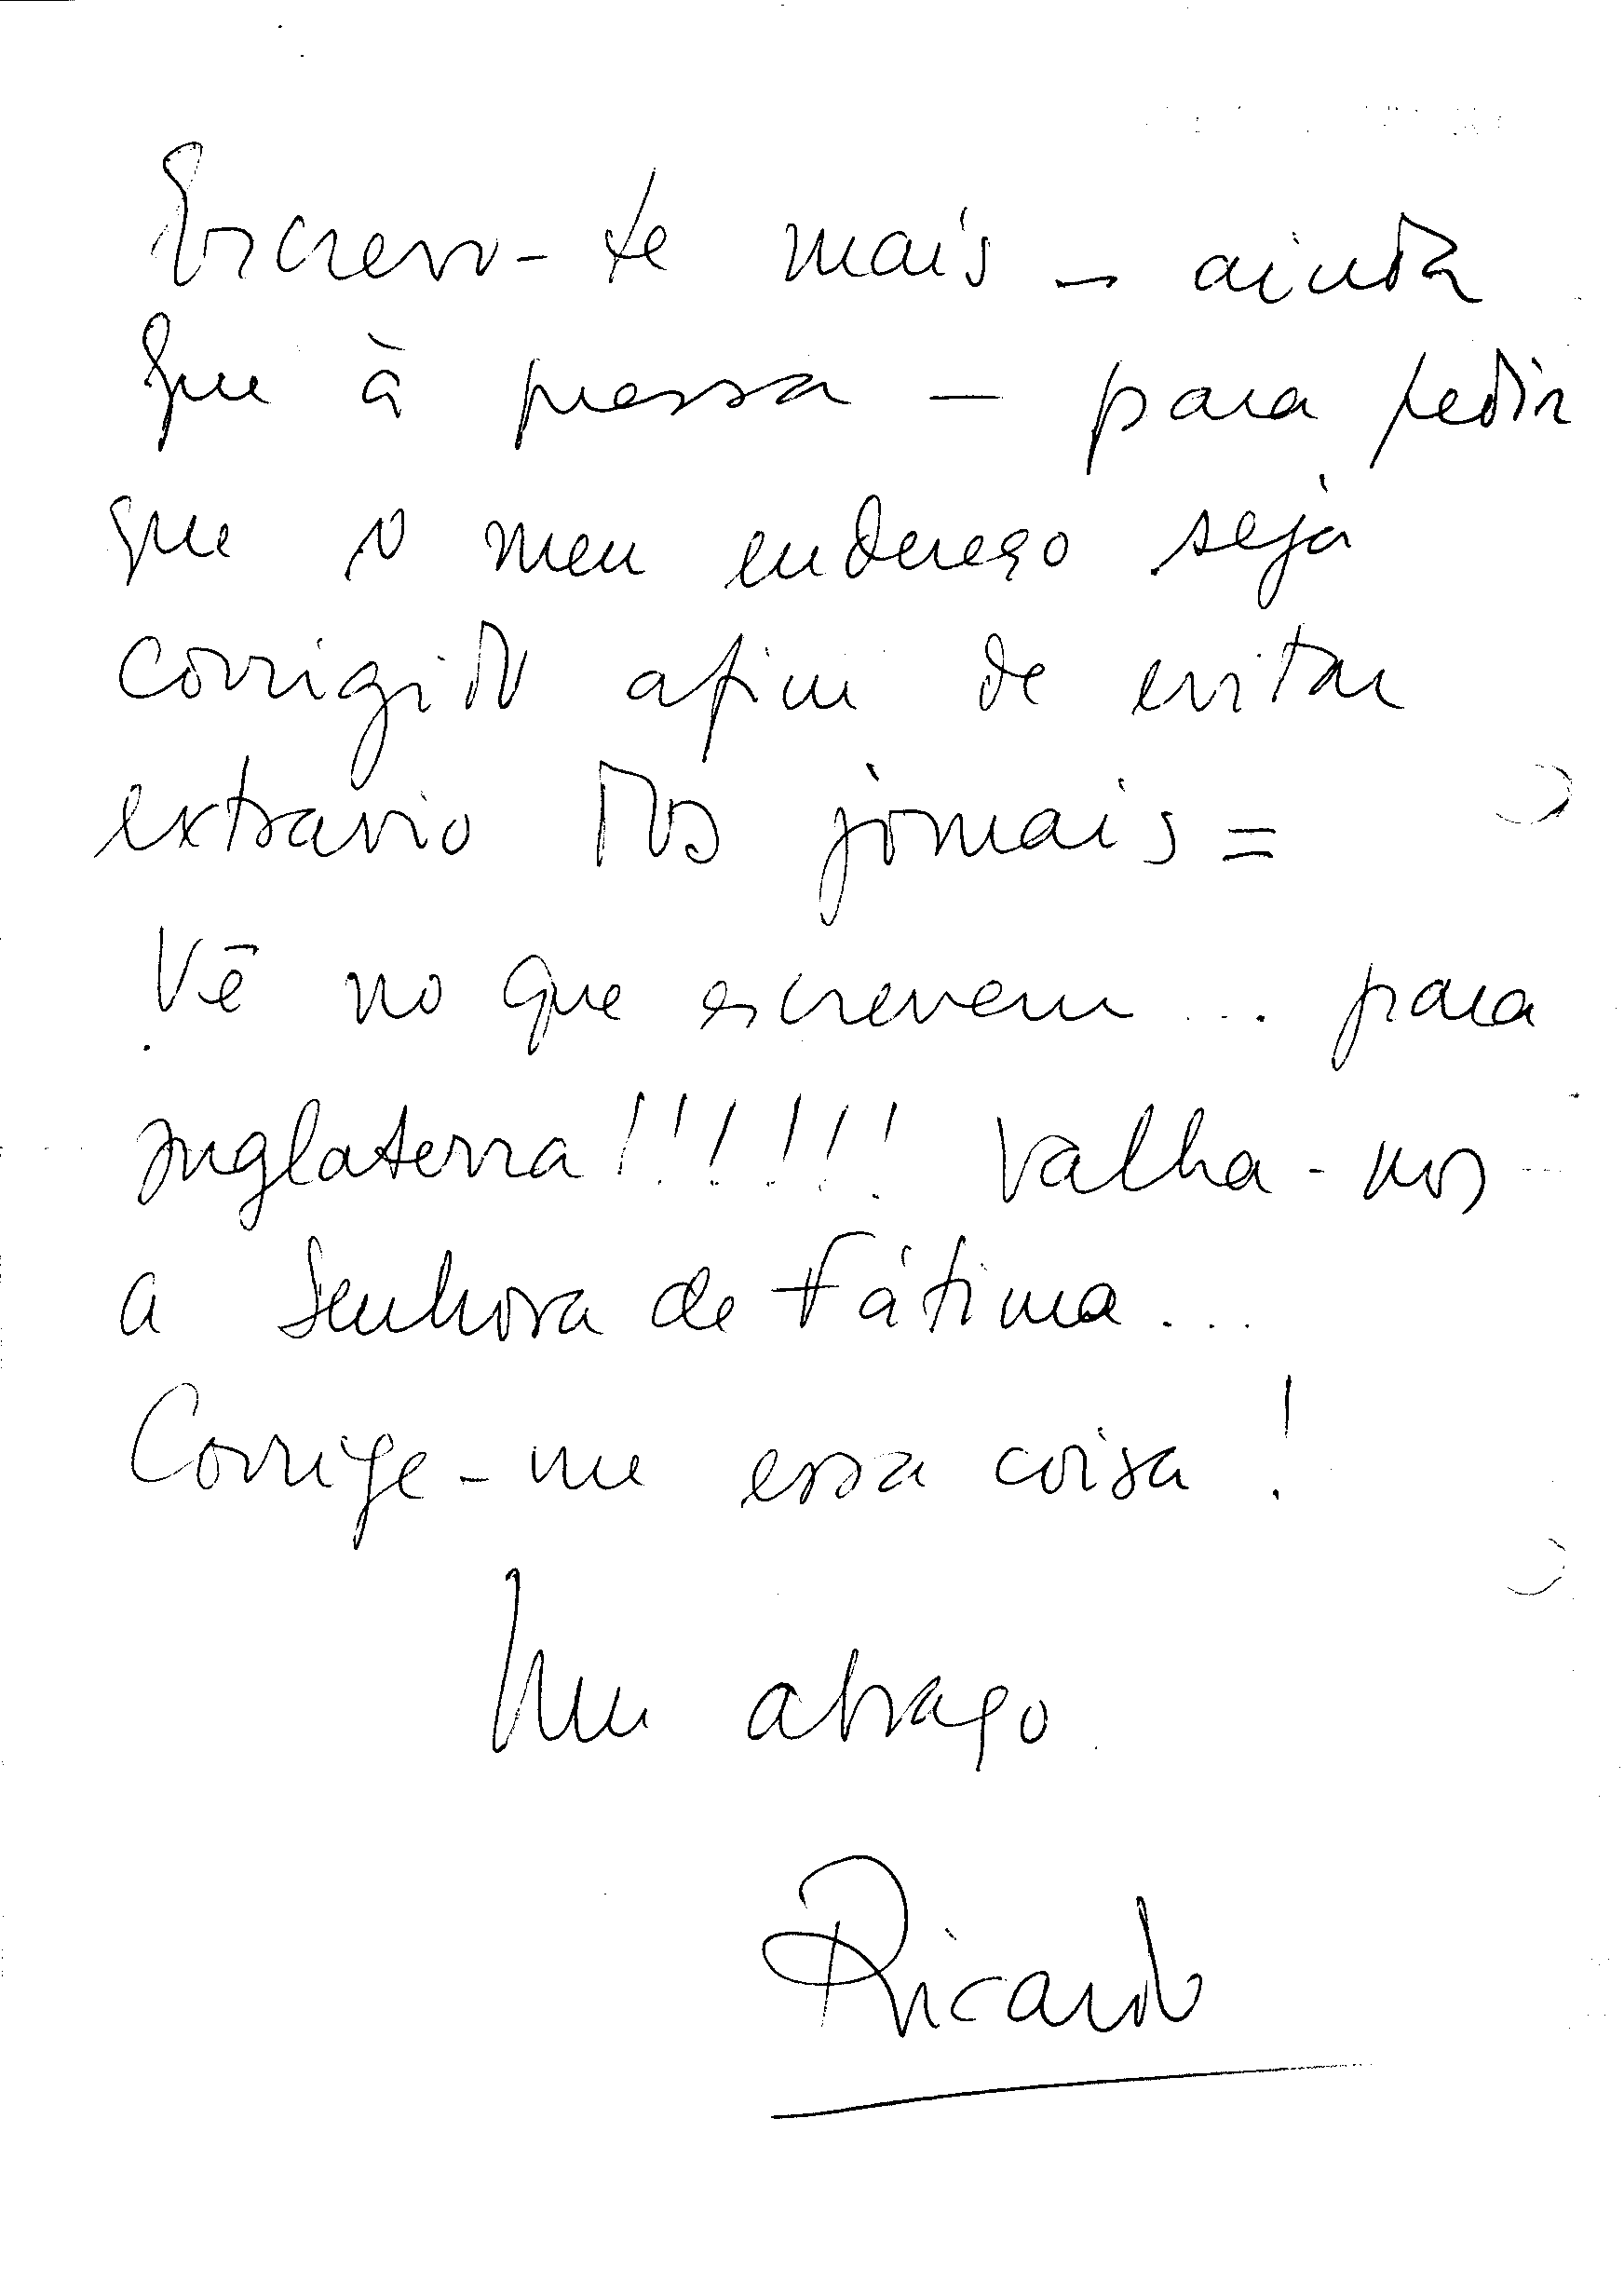 Escrevo-te mais – ainda
que à pressa – para pedir
que o meu endereço seja
corrigido afim de evitar
extravio dos jornais =
Vê no que escrevem ... para
Inglaterra!!!!!!! Valha-nos
a Senhora de Fátima...
Corrige-me essa coisa!
Um abraço
Ricardo